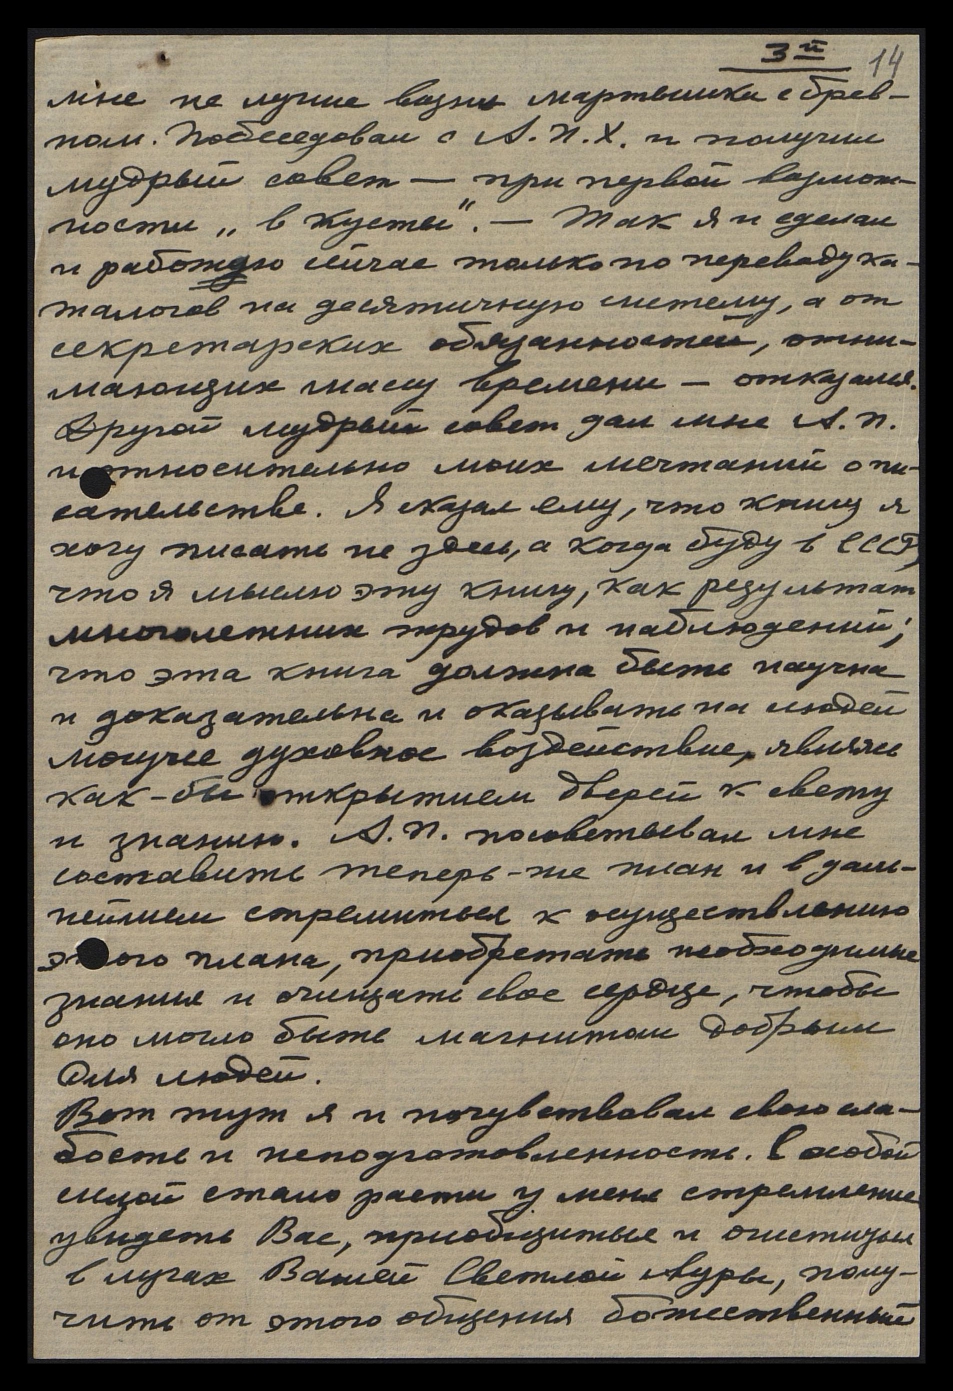 3й 14
мне не лучше возни мартышки с брев-
ном. Побеседовал с А.П.Х. и получил
мудрый совет — при первой возмож-
ности „в кусты“. — Так я и сделал
и работаю сейчас только по переводу ка-
талогов на десятичную систему, а от
секретарских обязанностей, отни-
мающих массу времени — отказался.
Другой мудрый совет дал мне А.П.
и относительно моих мечтаний о пи-
сательстве. Я сказал ему, что книгу я
хочу писать не здесь, а когда буду в СССР,
что я мыслю эту книгу, как результат
многолетних трудов и наблюдений;
что эта книга должна быть научна
и доказательна и оказывать на людей
могучее духовное воздействие, являясь
как-бы открытием дверей к свету
и знанию. А.П. посоветывал мне
составить теперь-же план и в даль-
нейшем стремиться к осуществлению
этого плана, приобретать необходимые
знания и очищать свое сердце, чтобы
оно могло быть магнитом добрым
для людей.
Вот тут я и почувствовал свою сла-
бость и неподготовленность. С особой
силой стало расти у меня стремление
увидеть Вас, приобщиться и очиститься
в лучах Вашей Светлой Ауры, полу-
чить от этого общения божественный